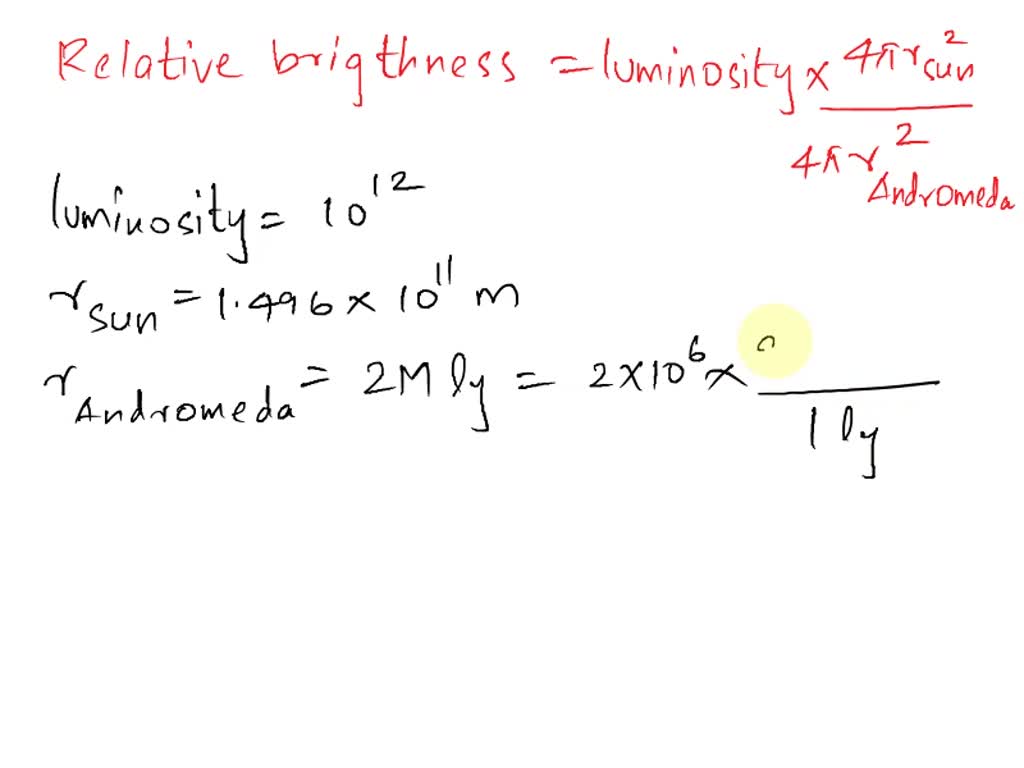 Relative brigthness = luminosity × 4πr²sun / 4πr²Andromeda
luminosity = 10¹²
rsun = 1.496 × 10¹¹ m
rAndromeda = 2M ly = 2×10⁶ × / 1 ly